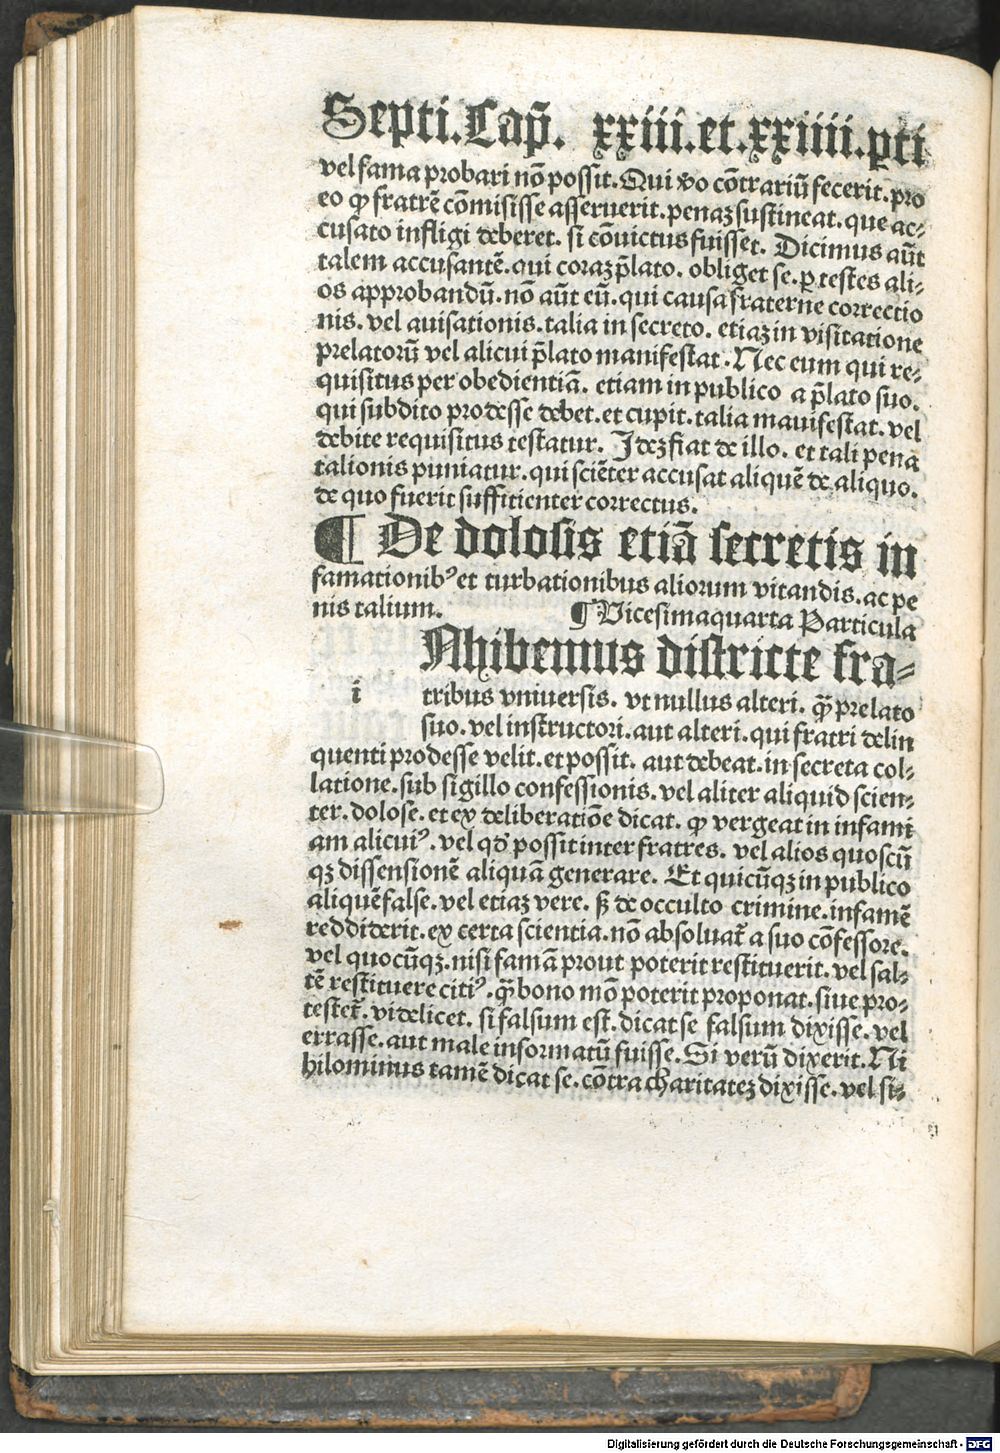 Septi. Cap̄. xxiii. et. xxiiii. ꝑti
vel fama probari nō possit. Qui ꝟo cōtrariū fecerit. pro
eo ꝙ fratrē cōmisisse asseruerit. penaꝫ sustineat. que ac⸗
cusato infligi deberet. si cōuictus fuisset. Dicimus aūt
talem accusantē. qui coraꝫ p̄lato. obliget se. ꝑ testes ali⸗
os approbandū. nō aūt eū. qui causa fraterne correctio
nis. vel auisationis. talia in secreto. etiaꝫ in visitatione
prelatorū vel alicui p̄lato manifestat. Nec eum qui re⸗
quisitus per obedientiā. etiam in publico a p̄lato suo.
qui subdito prodesse debet. et cupit. talia mauifestat. vel
debite requisitus testatur. Jdeꝫ fiat de illo. et tali pena
talionis puniatur. qui sciēter accusat aliquē de aliquo.
de quo fuerit suffitienter correctus.
¶ De dolosis etiā secretis in
famationibꝰ et turbationibus aliorum vitandis. ac pe
nis talium. ¶ Vicesimaquarta Particula
Nhibemus districte fra⸗
ī tribus vniuersis. vt nullus alteri. ꝙ̄ prelato
suo. vel instructori. aut alteri. qui fratri delin
quenti prodesse velit. et possit. aut debeat. in secreta col⸗
latione. sub sigillo confessionis. vel aliter aliquid scien⸗
ter. dolose. et ex deliberatiōe dicat. ꝙ vergeat in infami
am alicuiꝰ. vel qđ possit inter fratres. vel alios quoscū
qꝫ dissensionē aliquā generare. Et quicūqꝫ in publico
aliquē false. vel etiaꝫ vere. sꝫ de occulto crimine. infamē
reddiderit. ex certa scientia. nō absoluat᷑ a suo cōfessore.
vel quocūqꝫ. nisi famā prout poterit restituerit. vel sal⸗
tē restituere citiꝰ. ꝙ̄ bono mō poterit proponat. siue pro⸗
testet᷑. videlicet. si falsum est. dicat se falsum dixisse. vel
errasse. aut male informatū fuisse. Si verū dixerit. Ni
hilominus tamē dicat se. cōtra charitateꝫ dixisse. vel si⸗
Digitalisierung gefördert durch die Deutsche Forschungsgemeinschaft - DFG